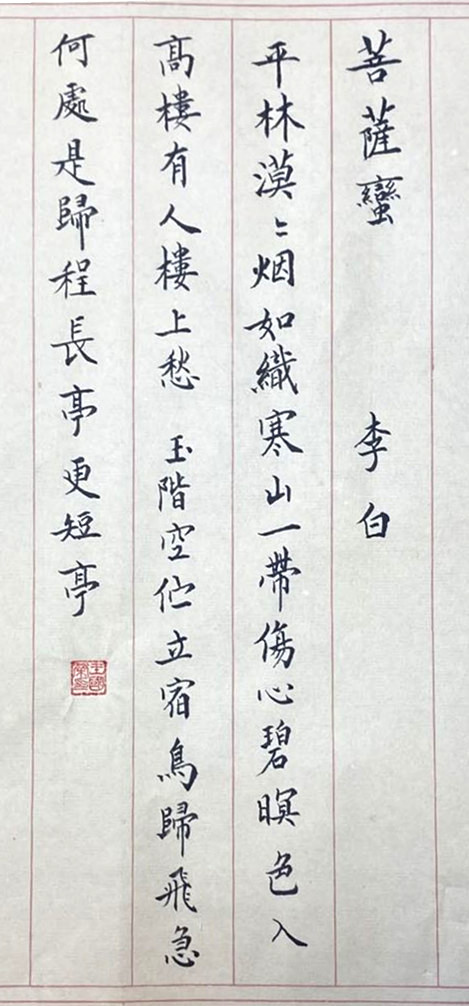 菩薩蠻 李白
平林漠〻烟如織寒山一帶傷心碧暝色入
高樓有人樓上愁 玉階空伫立宿鳥歸飛急
何處是歸程長亭更短亭